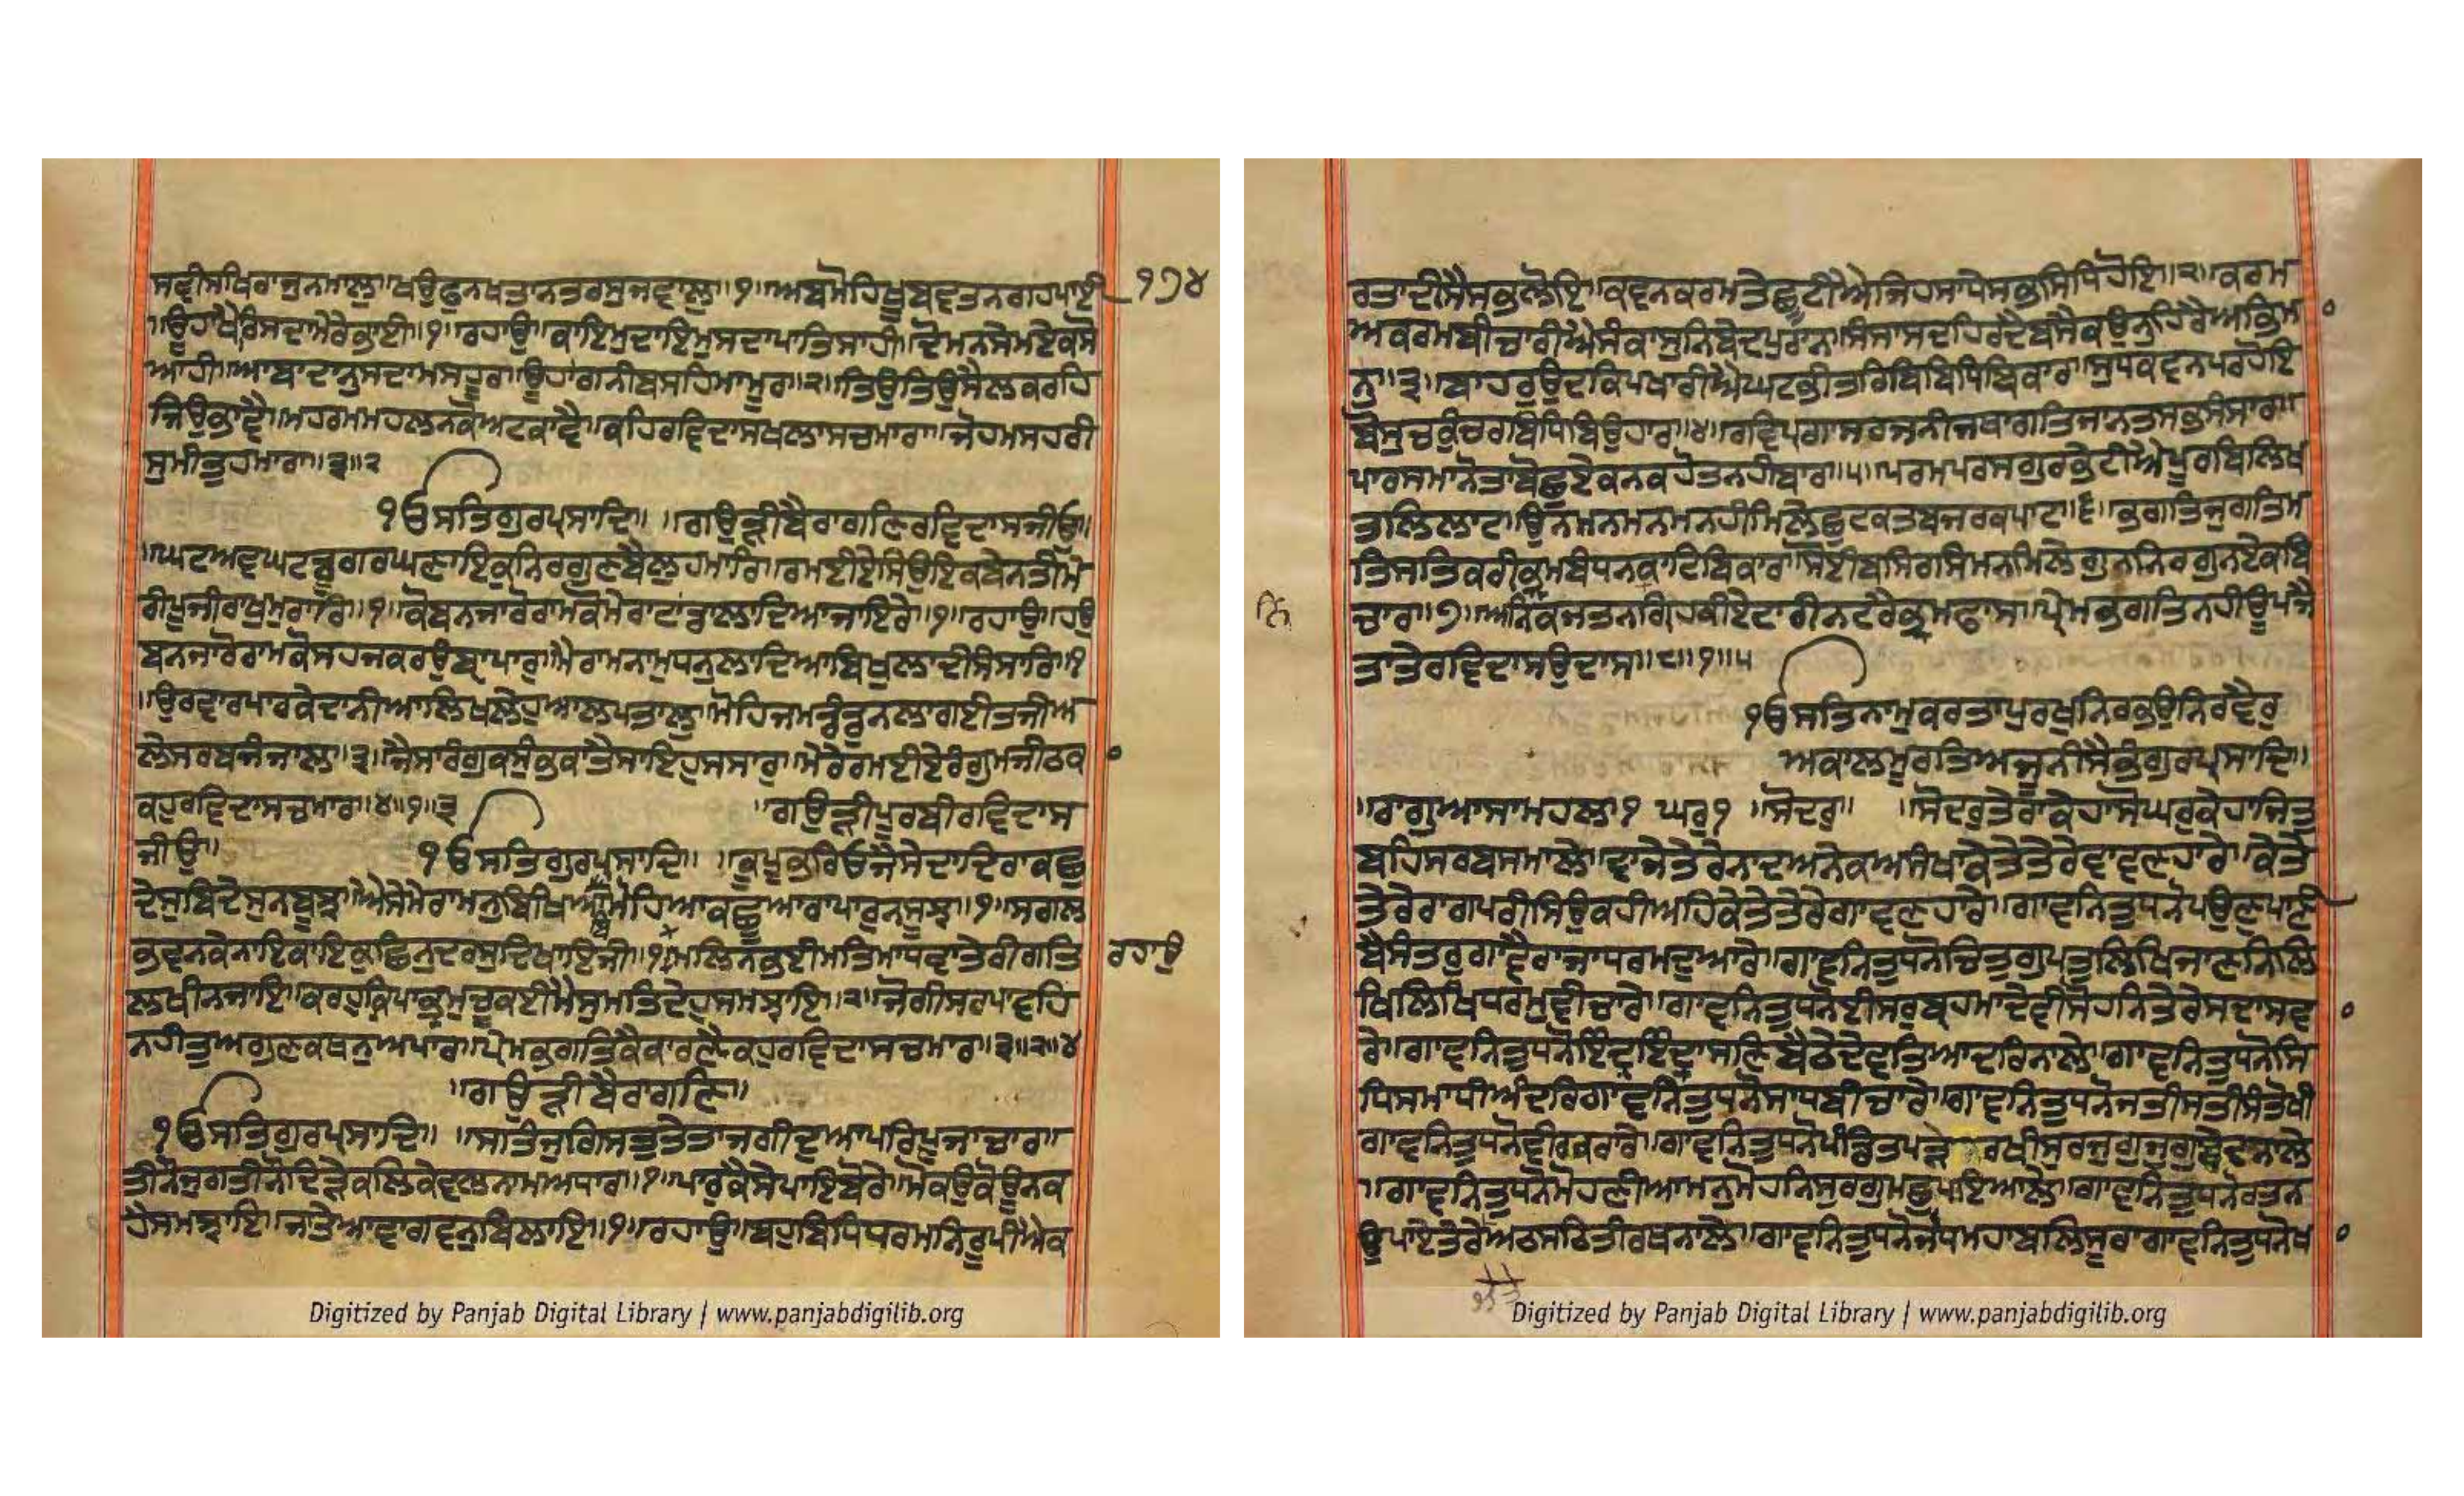 ਸਵੀਸਖਿਰਾਜੁਨਮਾਲੁ॥ਖਉਫੁਨਖਤਾਨਤਰਸੁਜਵਾਲੁ॥੧॥ਅਬਮੋਹਿਖੂਬਵਤਨਗਹਪਾਈ ੧੭੪
॥ਊਹਾਖੈਰਿਸਦਾਮੇਰੇਭਾਈ॥੧॥ਰਹਾਉ॥ਕਾਇਮੁਦਾਇਮੁਸਦਾਪਾਤਿਸਾਹੀ॥ਦੋਮਨਸੇਮਏਕਸੋ
ਆਹੀ॥ਆਬਾਦਾਨੁਸਦਾਮਸਹੂਰ॥ਊਹਾਗਨੀਬਸਹਿਮਾਮੂਰ॥੨॥ਤਿਉਤਿਉਸੈਲਕਰਹਿ
ਜਿਉਭਾਵੈ॥ਮਹਰਮਮਹਲਨਕੋਅਟਕਾਵੈ॥ਕਹਿਰਵਿਦਾਸਖਲਾਸਚਮਾਰਾ॥ਜੋਹਮਸਹਰੀ
ਸੁਮੀਤੁਹਮਾਰਾ॥੩॥੨
ੴਸਤਿਗੁਰਪ੍ਰਸਾਦਿ॥ ॥ਗਉੜੀਬੈਰਾਗਣਿਰਵਿਦਾਸਜੀਉ॥
॥ਘਟਅਵਘਟਡੂਗਰਘਣਾਇਕੁਨਿਰਗੁਣਬੈਲੁਹਮਾਰਿ॥ਰਮਈਏਸਿਉਇਕਬੇਨਤੀਮੇ
ਰੀਪੂਜੀਰਾਖੁਮੁਰਾਰਿ॥੧॥ਕੋਬਨਜਾਰੋਰਾਮਕੋਮੇਰਾਟਾਂਡਾਲਾਦਿਆਜਾਇਰੇ॥੧॥ਰਹਾਉ॥ਹਉ
ਬਨਜਾਰੋਰਾਮਕੋਸਹਜਕਰਉਬ੍ਯਾਪਾਰੁ॥ਮੈਰਾਮਨਾਮੁਧਨੁਲਾਦਿਆਬਿਖੁਲਾਦੀਸੰਸਾਰਿ॥੨
॥ਉਰਵਾਰਪਾਰਕੇਦਾਨੀਆਲਿਖਲੇਹੁਆਲਪਤਾਲੁ॥ਮੋਹਿਜਮਡੰਡੁਨਲਾਗਈਤਜੀਅ
ਲੇਸਰਬਜੰਜਾਲ॥੩॥ਜੈਸਾਰੰਗੁਕਸੁੰਭਕਾਤੈਸਾਇਹੁਸੰਸਾਰੁ॥ਮੇਰੇਰਮਈਏਰੰਗੁਮਜੀਠਕਾ
ਕਹੁਰਵਿਦਾਸਚਮਾਰ॥੪॥੧॥੩ ॥ਗਉੜੀਪੂਰਬੀਰਵਿਦਾਸ
ਜੀਉ॥ ੴਸਤਿਗੁਰਪ੍ਰਸਾਦਿ॥ ॥ਕੂਪੁਭਰਿਓਜੈਸੇਦਾਦਿਰਾਕਛੁ
ਦੇਸੁਬਿਦੇਸੁਨਬੂਝ॥ਐਸੇਮੇਰਾਮਨੁਬਿਖਿਆਬਿਮੋਹਿਆਕਛੁਆਰਾਪਾਰੁਨਸੂਝ॥੧॥ਸਗਲ
ਭਵਨਕੇਨਾਇਕਾਇਕੁਛਿਨੁਦਰਸੁਦਿਖਾਇਜੀ॥੧॥ਮਲਿਨਭਈਮਤਿਮਾਧਵਾਤੇਰੀਗਤਿ ਰਹਾਉ
ਲਖੀਨਜਾਇ॥ਕਰਹੁਕ੍ਰਿਪਾਭ੍ਰਮੁਚੂਕਈਮੈਸੁਮਤਿਦੇਹੁਸਮਝਾਇ॥੨॥ਜੋਗੀਸਰਪਾਵਹਿ
ਨਹੀਤੁਅਗੁਣਕਥਨੁਅਪਾਰ॥ਪ੍ਰੇਮਭਗਤਿਕੈਕਾਰਣੈਕਹੁਰਵਿਦਾਸਚਮਾਰ॥੩॥੨॥੪
॥ਗਉੜੀਬੈਰਾਗਣਿ॥
ੴਸਤਿਗੁਰਪ੍ਰਸਾਦਿ॥ ॥ਸਤਿਜੁਗਿਸਤੁਤੇਤਾਜਗੀਦੁਆਪਰਿਪੂਜਾਚਾਰ॥
ਤੀਨੋਜੁਗਤੀਨੋਦਿੜੇਕਲਿਕੇਵਲਨਾਮਅਧਾਰ॥੧॥ਪਾਰੁਕੈਸੇਪਾਇਬੋਰੇ॥ਮੋਕਉਕੋਊਨਕ
ਹੈਸਮਝਾਇ॥ਜਾਤੇਆਵਾਗਵਨੁਬਿਲਾਇ॥੧॥ਰਹਾਉ॥ਬਹੁਬਿਧਿਧਰਮਨਿਰੂਪੀਐਕ
ਰਤਾਦੀਸੈਸਭਲੋਇ॥ਕਵਨਕਰਮਤੇਛੂਟੀਐਜਿਹਸਾਧੇਸਭਸਿਧਿਹੋਇ॥੨॥ਕਰਮ
ਅਕਰਮਬੀਚਾਰੀਐਸੰਕਾਸੁਨਿਬੇਦਪੁਰਾਨ॥ਸੰਸਾਸਦਹਿਰਦੈਬਸੈਕਉਨੁਹਿਰੈਅਭਿਮਾ
ਨੁ॥੩॥ਬਾਹਰੁਉਦਕਿਪਖਾਰੀਐਘਟਭੀਤਰਿਬਿਬਿਧਿਬਿਕਾਰ॥ਸੁਧਕਵਨਪਰਹੋਇ
ਬੋਸੁਚਕੁੰਚਰਬਿਧਿਬਿਉਹਾਰ॥੪॥ਰਵਿਪ੍ਰਗਾਸਰਜਨੀਜਥਾਗਤਿਜਾਨਤਸਭਸੰਸਾਰ॥
ਪਾਰਸਮਾਨੋਤਾਬੋਛੁਏਕਨਕਹੋਤਨਹੀਬਾਰ॥੫॥ਪਰਮਪਰਸਗੁਰਭੇਟੀਐਪੂਰਬਲਿਖ
ਤਲਿਲਾਟ॥ਉਨਮਨਮਨਮਨਹੀਮਿਲੇਛੁਟਕਤਬਜਰਕਪਾਟ॥੬॥ਭਗਤਿਜੁਗਤਿਮ
ਤਿਸਤਿਕਰੀਭ੍ਰਮਬੰਧਨਕਾਟਿਬਿਕਾਰ॥ਸੋਈਬਸਿਰਸਿਮਨਮਿਲੇਗੁਨਨਿਰਗੁਨਏਕਬਿ
ਚਾਰ॥੭॥ਅਨਿਕਜਤਨਨਿਗ੍ਰਹਕੀਏਟਾਰੀਨਟਰੈਭ੍ਰਮਫਾਸ॥ਪ੍ਰੇਮਭਗਤਿਨਹੀਊਪਜੈ
ਤਾਤੇਰਵਿਦਾਸਉਦਾਸ॥੮॥੧॥੫
ੴਸਤਿਨਾਮੁਕਰਤਾਪੁਰਖੁਨਿਰਭਉਨਿਰਵੈਰੁ
ਅਕਾਲਮੂਰਤਿਅਜੂਨੀਸੈਭੰਗੁਰਪ੍ਰਸਾਦਿ॥
॥ਰਾਗੁਆਸਾਮਹਲਾ੧ ਘਰੁ੧ ॥ਸੋਦਰੁ॥ ॥ਸੋਦਰੁਤੇਰਾਕੇਹਾਸੋਘਰੁਕੇਹਾਜਿਤੁ
ਬਹਿਸਰਬਸਮਾਲੇ॥ਵਾਜੇਤੇਰੇਨਾਦਅਨੇਕਅਸੰਖਾਕੇਤੇਤੇਰੇਵਾਵਣਹਾਰੇ॥ਕੇਤੇ
ਤੇਰੇਰਾਗਪਰੀਸਿਉਕਹੀਅਹਿਕੇਤੇਤੇਰੇਗਾਵਣਹਾਰੇ॥ਗਾਵਨਿਤੁਧਨੋਪਉਣੁਪਾਣੀ
ਬੈਸੰਤਰੁਗਾਵੈਰਾਜਾਧਰਮਦੁਆਰੇ॥ਗਾਵਨਿਤੁਧਨੋਚਿਤੁਗੁਪਤੁਲਿਖਿਜਾਣਨਿਲਿ
ਖਿਲਿਖਿਧਰਮੁਵੀਚਾਰੇ॥ਗਾਵਨਿਤੁਧਨੋਈਸਰੁਬ੍ਰਹਮਾਦੇਵੀਸੋਹਨਿਤੇਰੇਸਦਾਸਵਾ
ਰੇ॥ਗਾਵਨਿਤੁਧਨੋਇੰਦ੍ਰਇੰਦ੍ਰਾਸਣਿਬੈਠੇਦੇਵਤਿਆਦਰਿਨਾਲੇ॥ਗਾਵਨਿਤੁਧਨੋਸਿ
ਧਸਮਾਧੀਅੰਦਰਿਗਾਵਨਿਤੁਧਨੋਸਾਧਬੀਚਾਰੇ॥ਗਾਵਨਿਤੁਧਨੋਜਤੀਸਤੀਸੰਤੋਖੀ
ਗਾਵਨਿਤੁਧਨੋਵੀਰਕਰਾਰੇ॥ਗਾਵਨਿਤੁਧਨੋਪੰਡਿਤਪੜੇ ਰਖੀਸੁਰਜੁਗੁਜੁਗੁਬੇਦਾਨਾਲੇ
॥ਗਾਵਨਿਤੁਧਨੋਮੋਹਣੀਆਮਨੁਮੋਹਨਿਸੁਰਗੁਮਛੁਪਇਆਲੇ॥ਗਾਵਨਿਤੁਧਨੋਰਤਨ
ਉਪਾਏਤੇਰੇਅਠਸਠਿਤੀਰਥਨਾਲੇ॥ਗਾਵਨਿਤੁਧਨੋਜੋਧਮਹਾਬਲਿਸੂਰਾਗਾਵਨਿਤੁਧਨੋਖਾ
Digitized by Panjab Digital Library | www.panjabdigilib.org
Digitized by Panjab Digital Library | www.panjabdigilib.org